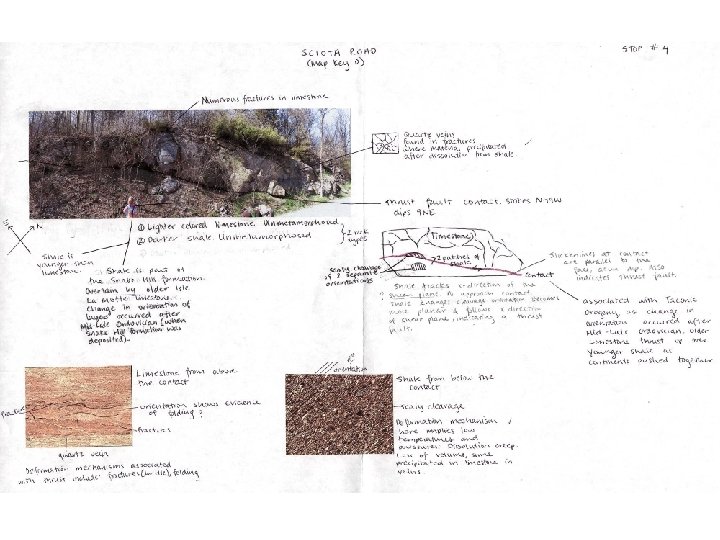 SCIOTA ROAD
(Map Key 8)
STOP # 4
Numerous fractures in limestone
Quartz veins
found in fractures
where material precipitated
after dissolution from shale.
thrust fault contact. strikes N75W
dips 9NE
① Lighter colored limestone. Unmetamorphosed
② Darker shale. Unmetamorphosed
2 rock
types
Shale is
younger than
limestone.
Shale is part of
the Snake Hill formation.
Overlain by older Isle
La Motte limestone.
change in orientation of
layers occurred after
Mid-Late Ordovician (when
Snake Hill formation was
deposited).
limestone
2 patches of
shale
scaly cleavage
of 2 separate
orientations
contact
Shale tracks direction of the
shear plane. As approach contact
scaly cleavage orientation becomes
more planar & follows direction
of shear plane, indicating a thrust
fault.
Slickenlines at contact
are parallel to the
fault plane dip. Also
indicates thrust fault.
associated with Taconic
Orogeny as change in
orientation occurred after
Mid-Late Ordovician. Older
limestone thrust up over
younger shale as
continents pushed together
Limestone from above
the contact
orientation shows evidence
of folding?
fracture
fractures
quartz vein
Deformation mechanisms associated
with stress include fractures (brittle), folding
orientation
Shale from below the
contact
scaly cleavage
Deformation mechanism
here implies low
temperatures and
pressures. Dissolution creep.
Loss of volume, some
precipitated in limestone in
veins.